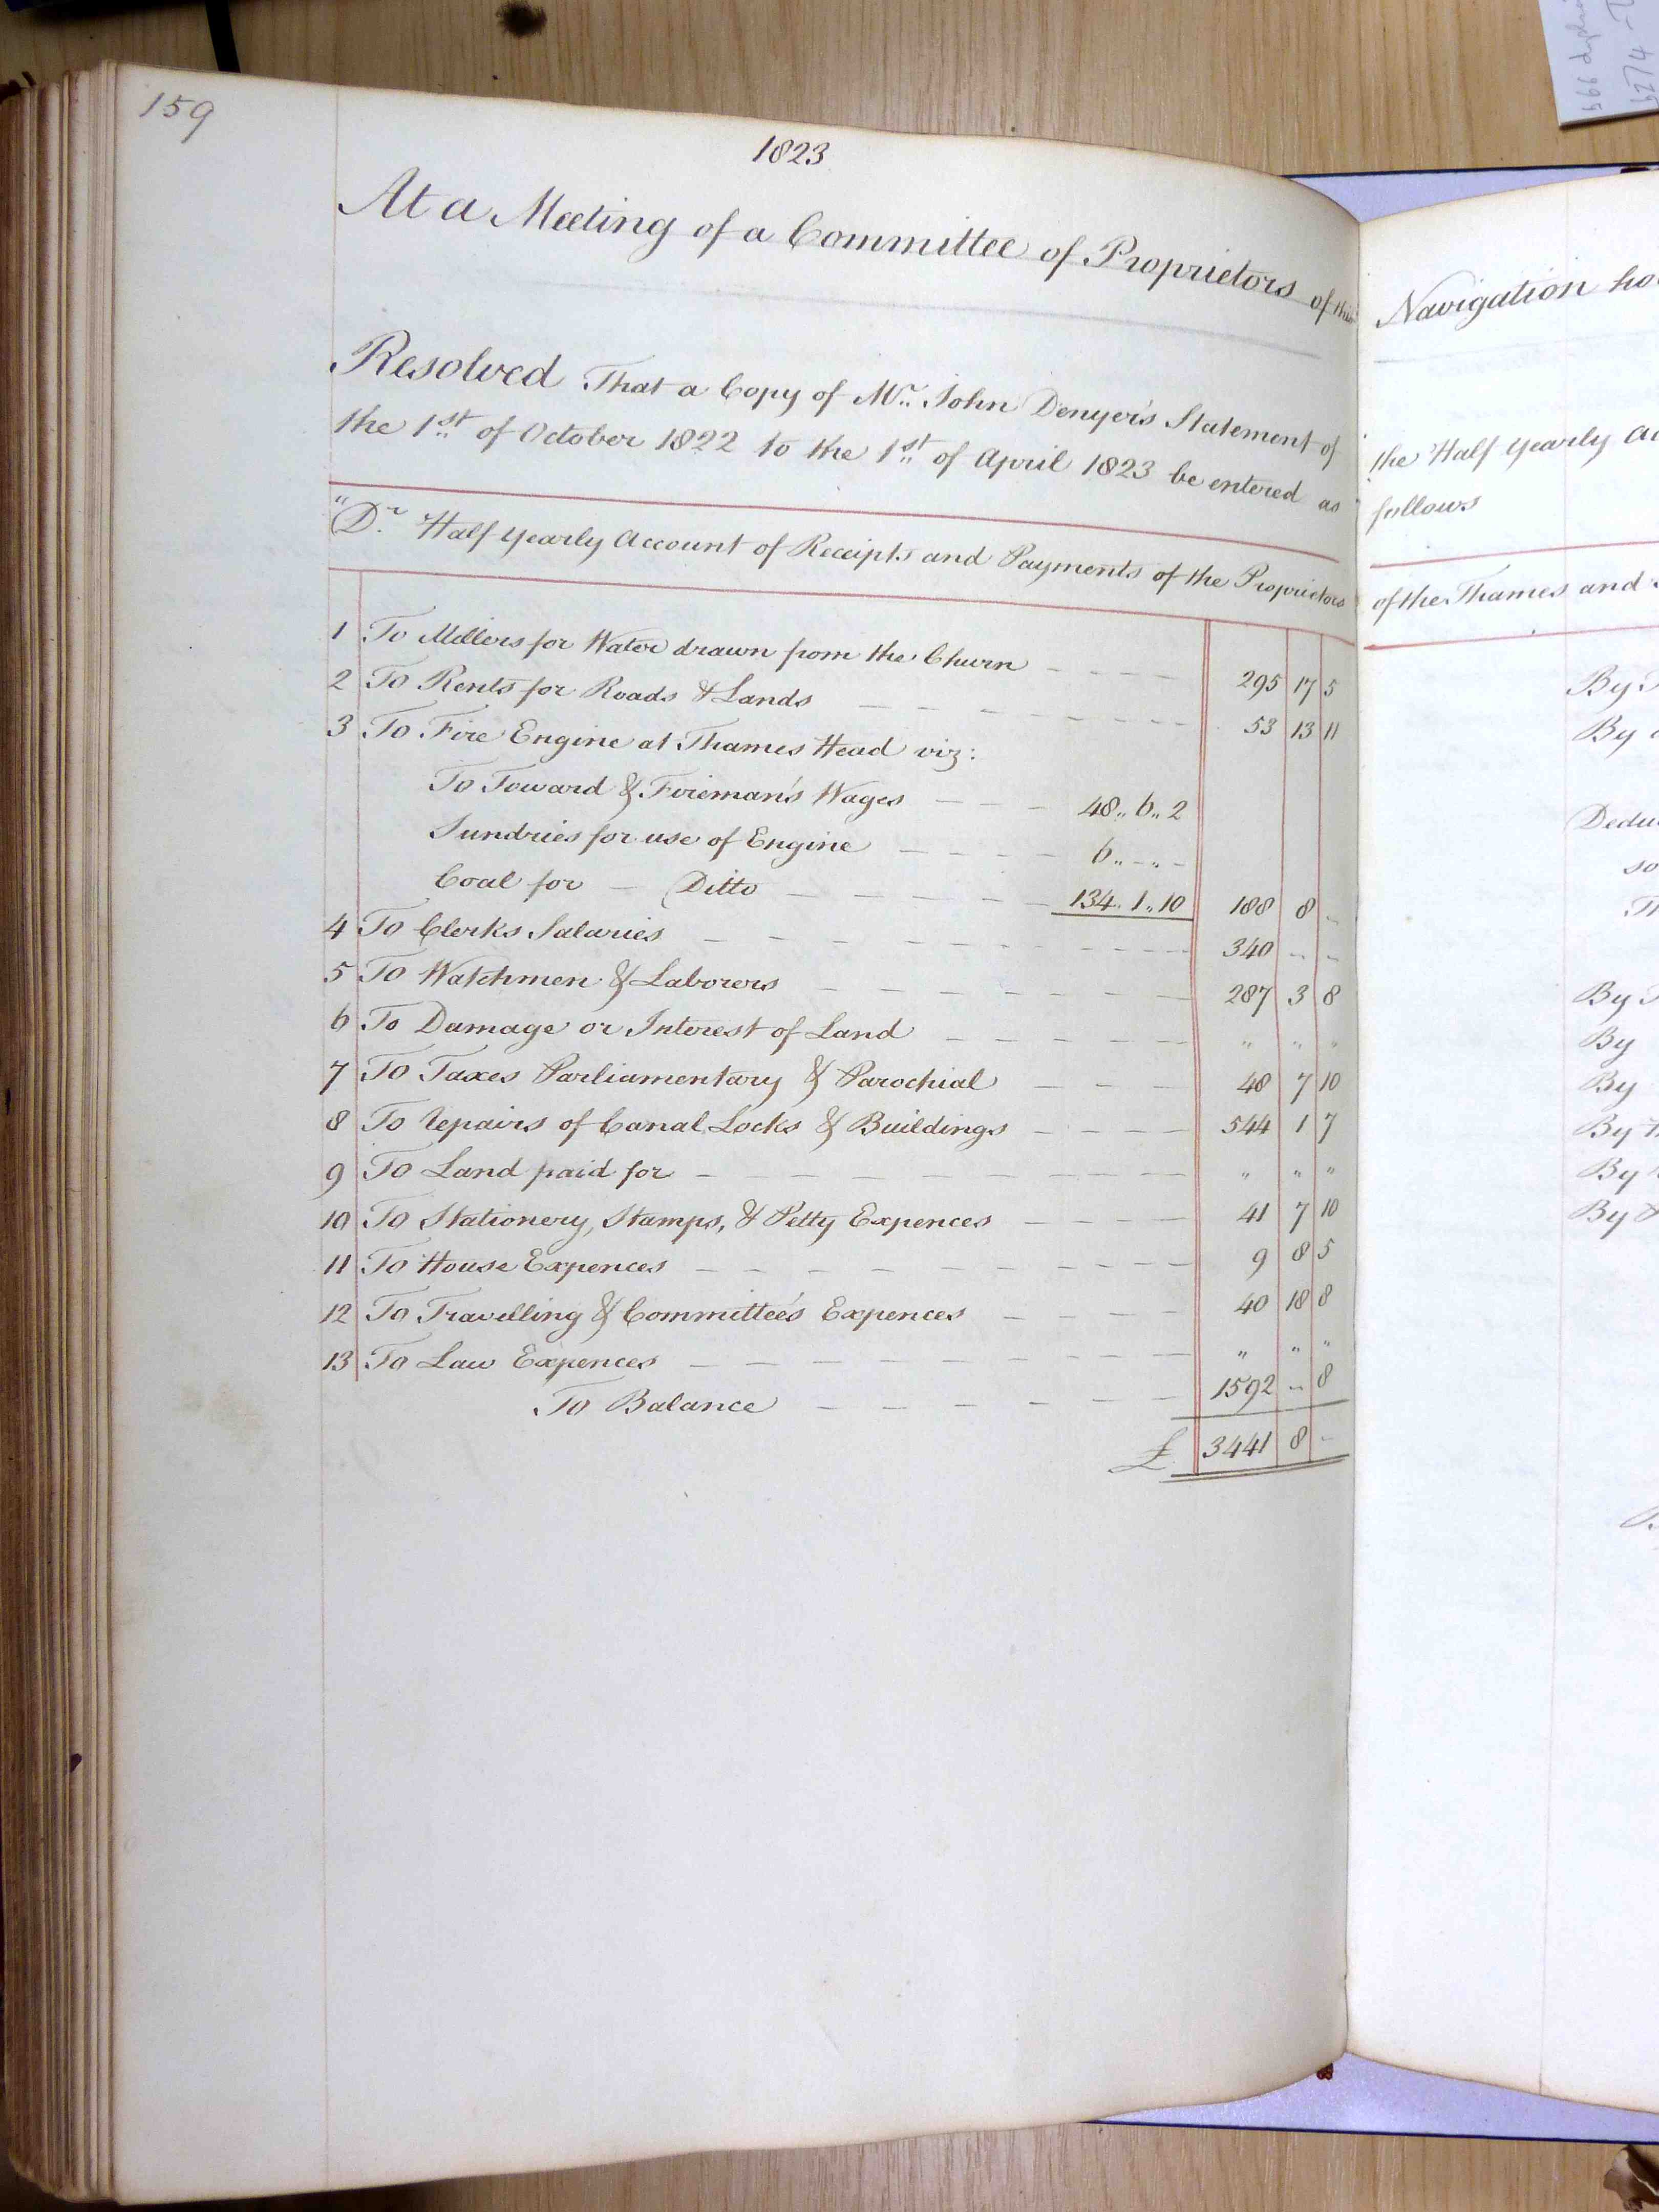 159
1823
At a Meeting of a Committee of Proprietors of this
Resolved That a Copy of Mr. John Denyer's Statement of
the 1st of October 1822 to the 1st of April 1823 be entered as
"Dr. Half Yearly Account of Receipts and Payments of the Proprietors
1 To Millers for Water drawn from the Churn 295 17 5
2 To Rents for Roads & Lands 53 13 11
3 To Fire Engine at Thames Head viz:
To Toward & Fireman's Wages 48 .. 6 .. 2
Sundries for use of Engine 6 .. - .. -
Coal for - Ditto 134 .. 1 .. 10 188 8 -
4 To Clerks Salaries 340 .. -
5 To Watchmen & Laborers 287 3 8
6 To Damage or Interest of Land " " "
7 To Taxes Parliamentary & Parochial 48 7 10
8 To repairs of Canal, Locks & Buildings 544 1 7
9 To Land paid for " " "
10 To Stationery, Stamps, & Petty Expences 41 7 10
11 To House Expences 9 8 5
12 To Travelling & Committee's Expences 40 18 8
13 To Law Expences " " "
To Balance 1592 .. 8
£ 3441 8 -
Navigation
the Half Yearly
follows
of the Thames and
By
By
By
By
By
By
By
By